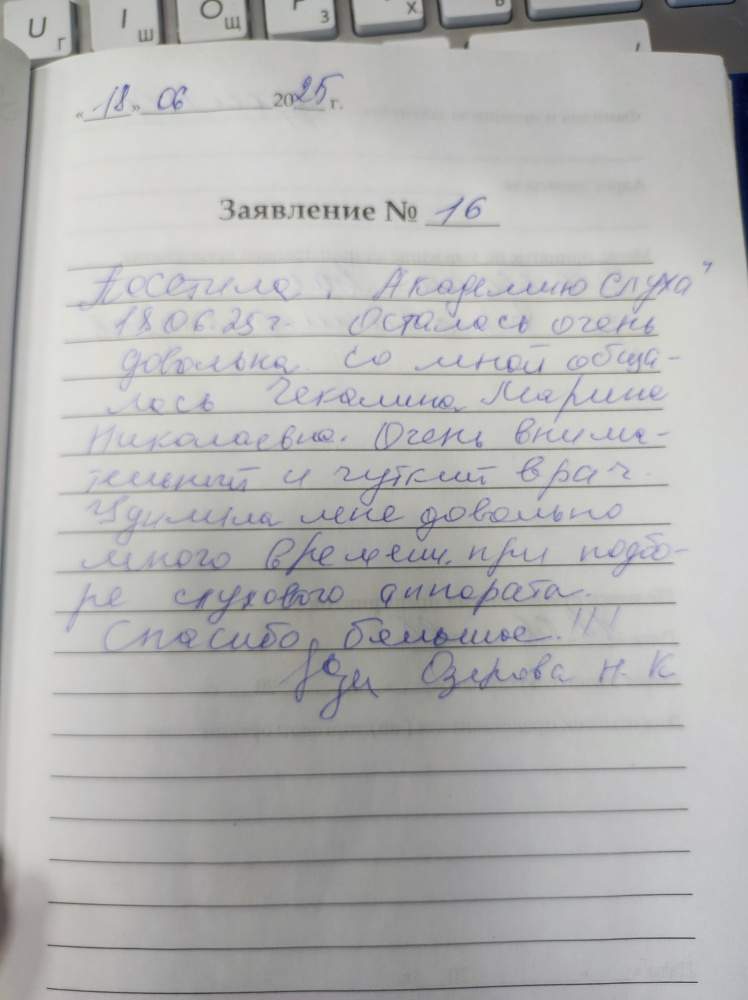 U Г
I Ш
О Щ
Р З
Х
« 18 » 06 2025 г.
Заявление № 16
Посетила „Академию слуха"
18.06.25 г. Осталась очень
довольна. Со мной обща-
лась Чекалина Марина
Николаевна. Очень внима-
тельный и чуткий врач.
Уделила мне довольно
много времени при подбо-
ре слухового аппарата.
Спасибо большое!!!
Озерова Н. К